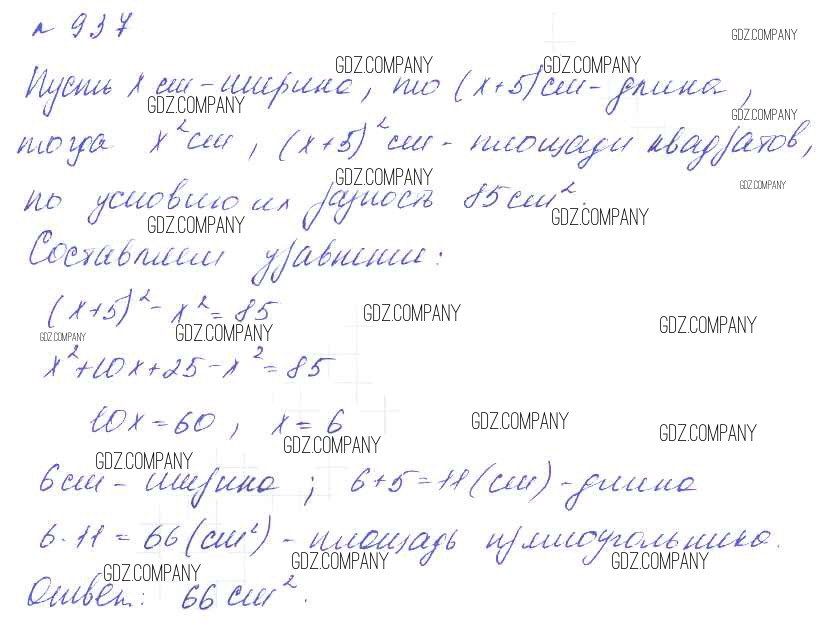 № 937
GDZ.COMPANY
GDZ.COMPANY GDZ.COMPANY
Пусть x см - ширина, то (x+5) см - длина,
GDZ.COMPANY GDZ.COMPANY
тогда x² см, (x+5)² см - площади квадратов,
GDZ.COMPANY GDZ.COMPANY
по условию их разность 85 см².
GDZ.COMPANY GDZ.COMPANY
Составляем уравнение:
(x+5)² - x² = 85
GDZ.COMPANY GDZ.COMPANY
GDZ.COMPANY GDZ.COMPANY
x² + 10x + 25 - x² = 85
10x = 60, x = 6
GDZ.COMPANY GDZ.COMPANY
GDZ.COMPANY GDZ.COMPANY
6 см - ширина; 6+5=11 (см) - длина
6·11 = 66 (см²) - площадь прямоугольника.
GDZ.COMPANY GDZ.COMPANY GDZ.COMPANY
Ответ: 66 см².